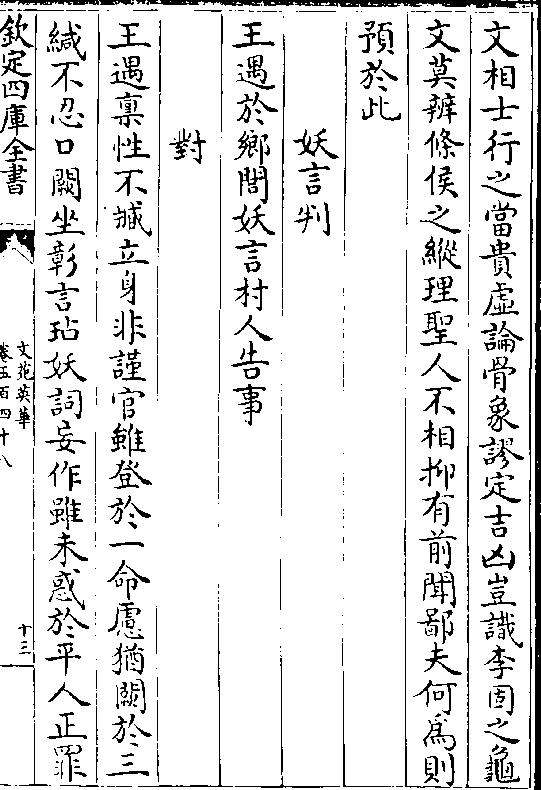 文相士行之當貴虛論骨象謬定吉凶豈識李固之龜
文莫辨條侯之縱理聖人不相抑有前聞鄙夫何為則
預於此
妖言判
王遇於鄉閭妖言村人告事
對
王遇稟性不摵立身非謹官雖登於一命慮猶闕於三
緘不忍口闕坐彰言玷妖詞妄作雖未惑於平人正罪
欽定四庫全書
文苑英華
卷五百四十八
十三